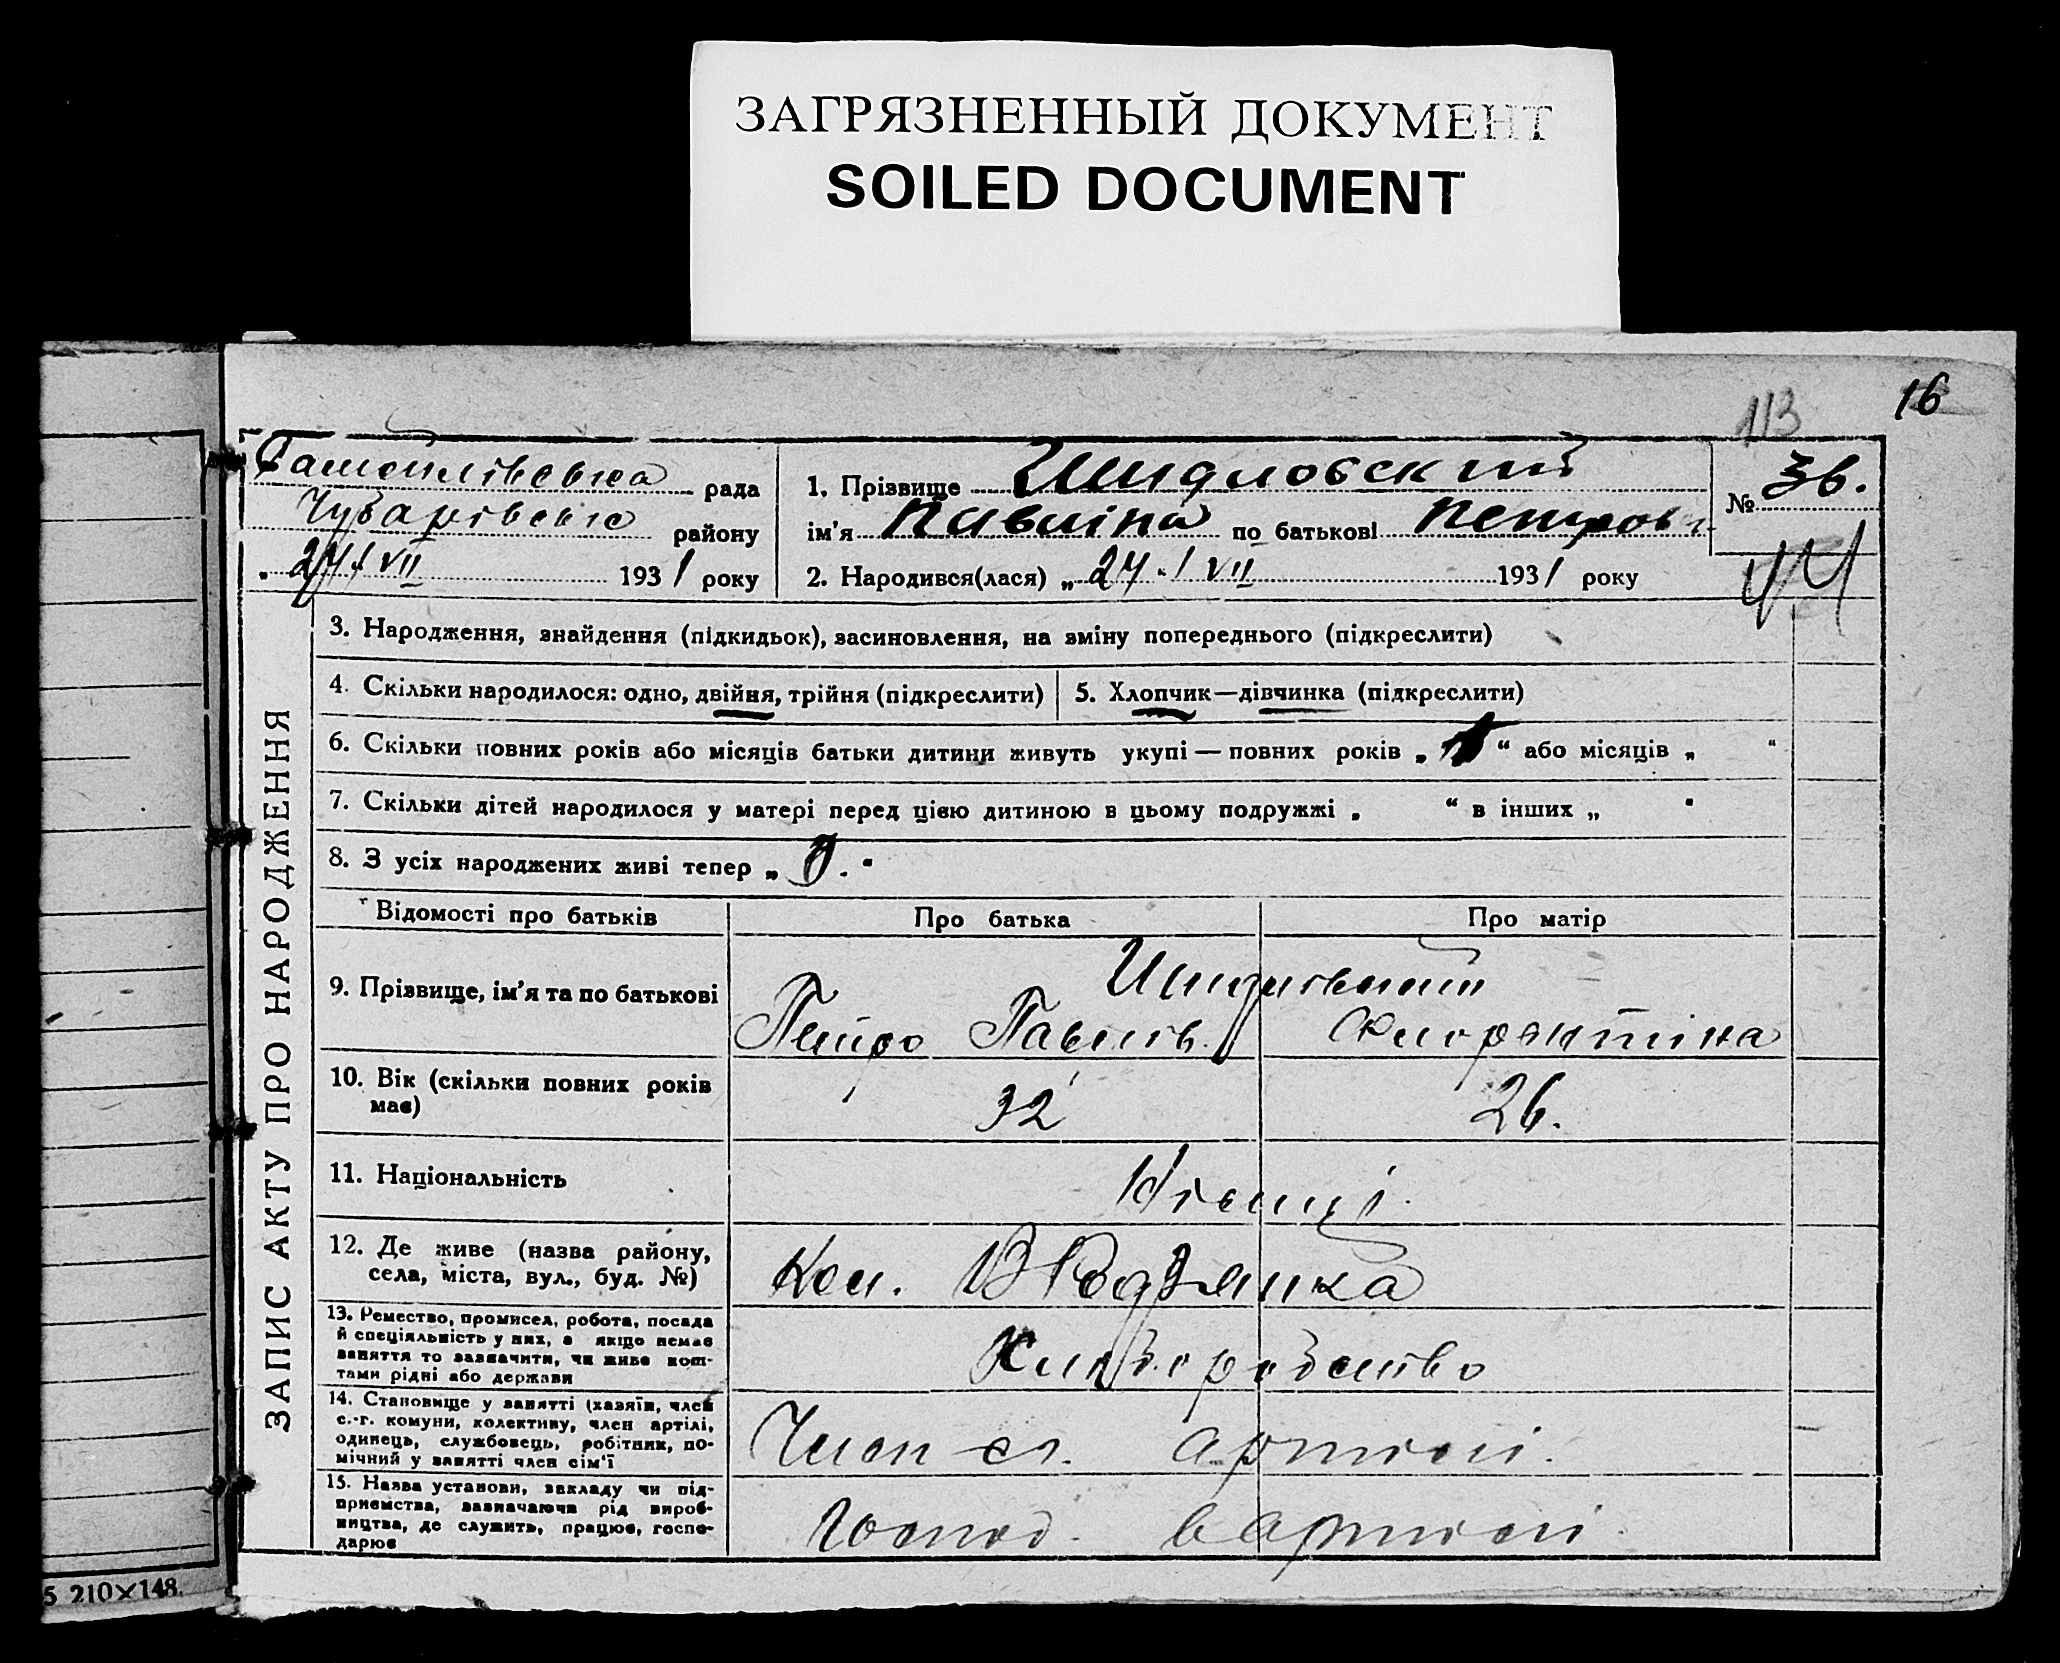 ЗАГРЯЗНЕННЫЙ ДОКУМЕНТ
SOILED DOCUMENT
113 16
рада
району
24/VII 1931 року
1. Прізвище Шидловский
ім'я Павліна по батькові Петров
2. Народився(лася) „24"/VII 1931 року
№ 36.
ЗАПИС АКТУ ПРО НАРОДЖЕННЯ
3. Народження, знайдення (підкидьок), засиновлення, на зміну попереднього (підкреслити)
4. Скільки народилося: одно, двійня, трійня (підкреслити)
5. Хлопчик—дівчинка (підкреслити)
6. Скільки повних років або місяців батьки дитини живуть укупі — повних років „ “ або місяців „ “
7. Скільки дітей народилося у матері перед цією дитиною в цьому подружжі „ “ в інших „ “
8. З усіх народжених живі тепер „
Відомості про батьків
Про батька
Про матір
9. Прізвище, ім'я та по батькові
Петро Павлів.
Флорентіна
10. Вік (скільки повних років
має)
32
26.
11. Національність
Німці.
12. Де живе (назва району,
села, міста, вул., буд. №)
Кол. Родзянка
13. Ремество, промисел, робота, посада
й спеціяльність у них, а якщо немає
заняття то зазначити, чи живе кош-
тами рідні або держави
Хліборобство
14. Становище у занятті (хазяїн, член
с.-г. комуни, колективу, член артілі,
одинець, службовець, робітник, по-
мічний у занятті член сім'ї
Член артілі.
15. Назва установи, закладу чи під-
приємства, зазначаючи рід вироб-
ництва, де служить, працює, госпо-
дарює
Господ. в артілі.
5 210×148.